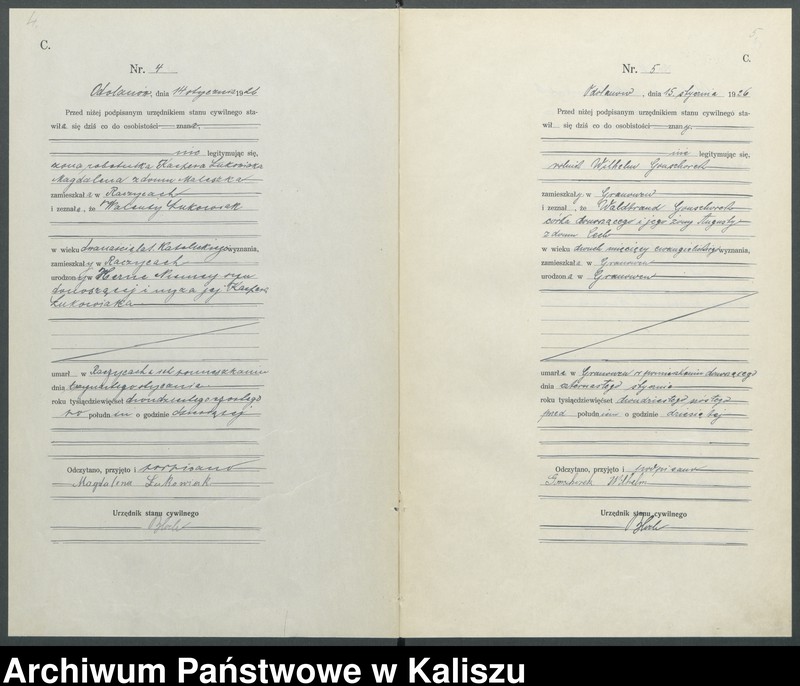 4.
C.
Nr. 4
Odolanów, dnia 14 stycznia 1926
Przed niżej podpisanym urzędnikiem stanu cywilnego sta-
wiła się dziś co do osobistości znana,
nie legitymując się,
żona robotnika Kaspra Łukowiaka
Magdalena z domu
zamieszkała w Raczycach
i zeznała, że Walenty Łukowiak
w wieku lat, Katolickiego wyznania,
zamieszkały w Raczycach
urodzony w Herne syn
donoszącej i męża jej Kaspra
Łukowiaka
umarł w Raczycach
dnia stycznia
roku tysiącdziewięćset dwudziestego szóstego
po południu o godzinie
Odczytano, przyjęto i podpisano
Magdalena Łukowiak
Urzędnik stanu cywilnego
5.
C.
Nr. 5
Odolanów, dnia 15. stycznia 1926
Przed niżej podpisanym urzędnikiem stanu cywilnego sta-
wił się dziś co do osobistości znany,
nie legitymując się,
rolnik Wilhelm
zamieszkały w
i zeznał, że
córka donoszącego i jego żony Augusty
z domu
w wieku dwóch miesięcy ewangelickiego wyznania,
zamieszkała w
urodzona w
umarła w w pomieszkaniu donoszącego
dnia czternastego stycznia
roku tysiącdziewięćset dwudziestego szóstego
przed południem o godzinie dziesiątej
Odczytano, przyjęto i podpisano
Wilhelm
Urzędnik stanu cywilnego
Archiwum Państwowe w Kaliszu